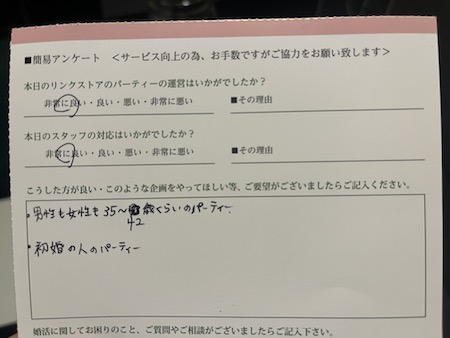 ■簡易アンケート ＜サービス向上の為、お手数ですがご協力をお願い致します＞
本日のリンクストアのパーティーの運営はいかがでしたか？
非常に良い・良い・悪い・非常に悪い ■その理由
本日のスタッフの対応はいかがでしたか？
非常に良い・良い・悪い・非常に悪い ■その理由
こうした方が良い・このような企画をやってほしい等、ご要望がございましたらご記入ください。
・男性も女性も35〜歳くらいのパーティー
42
・初婚の人のパーティー
婚活に関してお困りのこと、ご質問やご相談がございましたらご記入下さい。